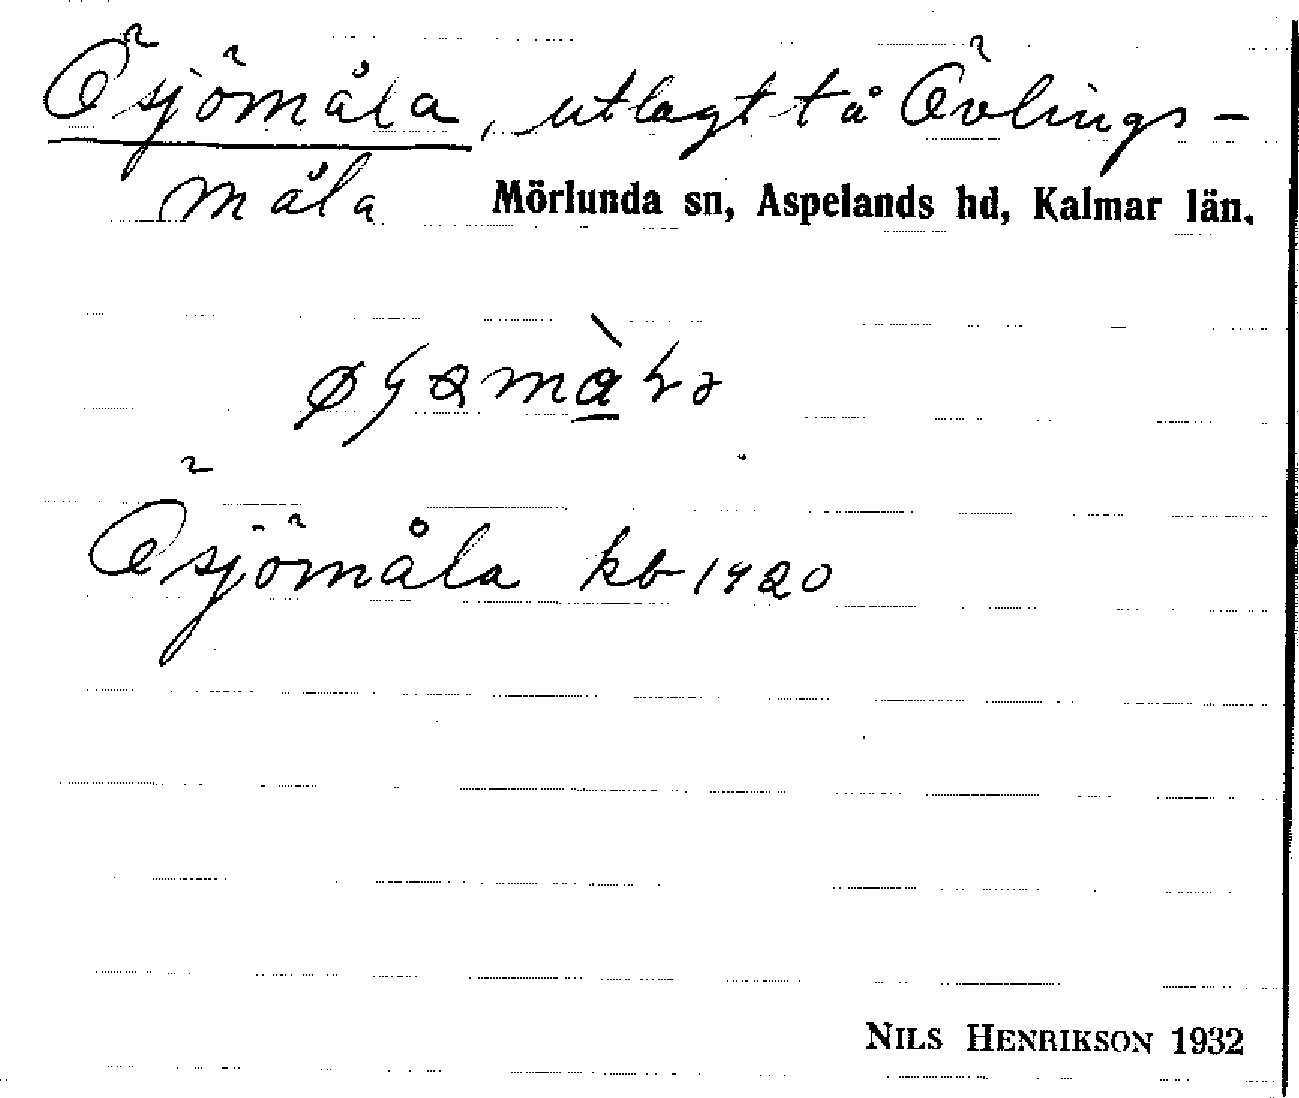 Ösjömåla, utlagt å Övlings-
måla Mörlunda sn, Aspelands hd, Kalmar län.
Ösjömåla kb 1920
NILS HENRIKSON 1932